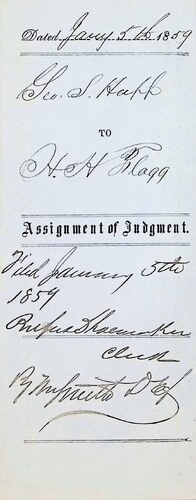 Dated Jany 5th 1859
Geo. S. Hupp
TO
H. H Flagg
Assignment of Judgment.
Filed January 5th
1859
Rufus Shoemaker
Clerk
By Smith D Clk